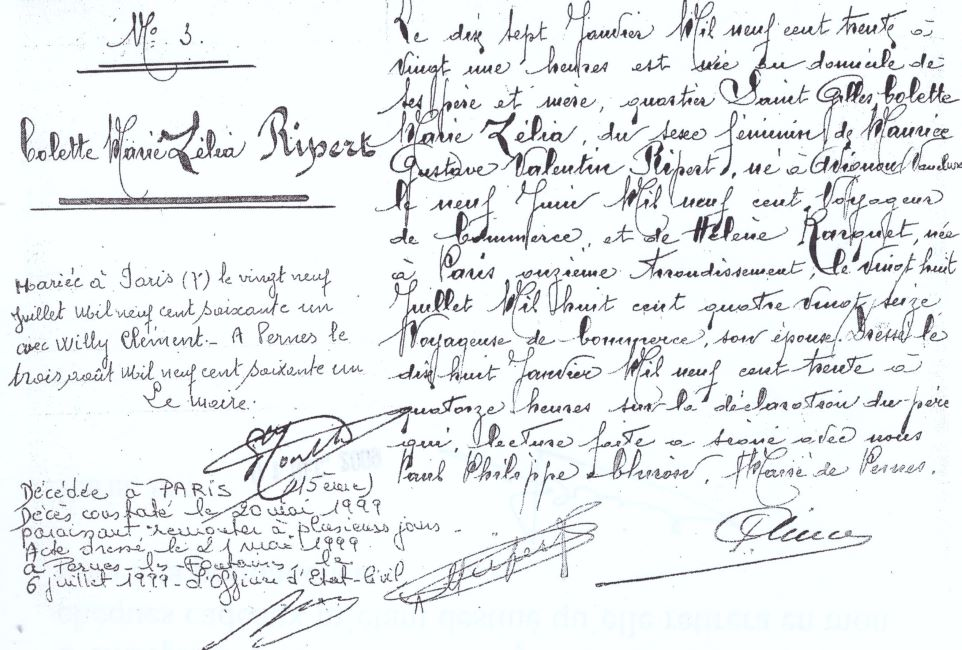 No 3.
Colette Marie Zélia Ripert
Mariée à Paris (7e) le vingt neuf
juillet mil neuf cent soixante un
avec Willy Clément._ A Pernes le
trois août mil neuf cent soixante un
Le maire.
Décédée à PARIS (15ème)
Décès constaté le 20 mai 1999
paraissant remonter à plusieurs jours.
Acte dressé le 21 mai 1999.
à Pernes-les Fontaines le
6 juillet 1999_L'Officier d'Etat-Civil
Le dix sept Janvier Mil neuf cent trente à
vingt une heures est née au domicile de
ses père et mère, quartier Saint Gilles Colette
Marie Zélia, du sexe féminin, de Maurice
Gustave Valentin Ripert, né à Avignon, Vaucluse
le neuf Juin Mil neuf cent, Voyageur
de Commerce, et de Hélène, née
à Paris onzième Arrondissement, le vingt huit
Juillet Mil huit cent quatre vingt seize
Voyageuse de Commerce, son épouse. Dressé le
dix huit Janvier Mil neuf cent trente à
quatorze heures sur la déclaration du père
qui, lecture faite a signé avec nous
Paul Philippe, Maire de Pernes.
Ripert